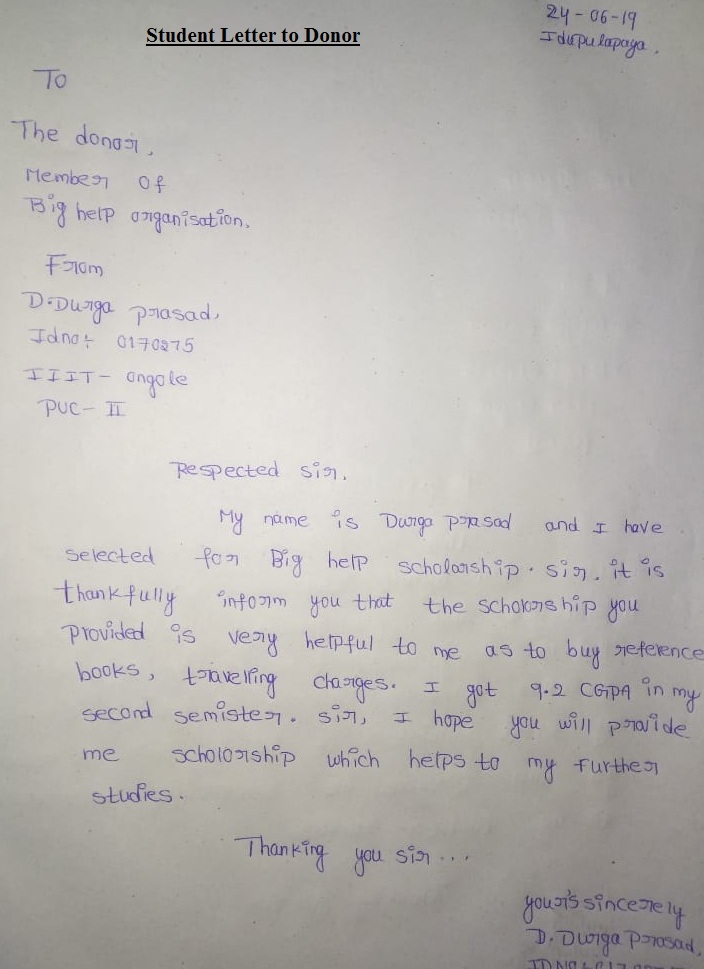 Student Letter to Donor
24-06-19
Idupulapaya.
To
The donor,
Member of
Big help organisation.
From
D.Durga prasad,
Idno:- O170275
IIIT- ongole
PUC- II
Respected sir,
My name is Durga prasad and I have
selected for Big help scholarship. sir, it is
thankfully inform you that the scholorship you
provided is very helpful to me as to buy reference
books, travelling charges. I got 9.2 CGPA in my
second semister. sir, I hope you will provide
me scholorship which helps to my further
studies.
Thanking you sir...
your's sincerely
D. Durga Prasad,